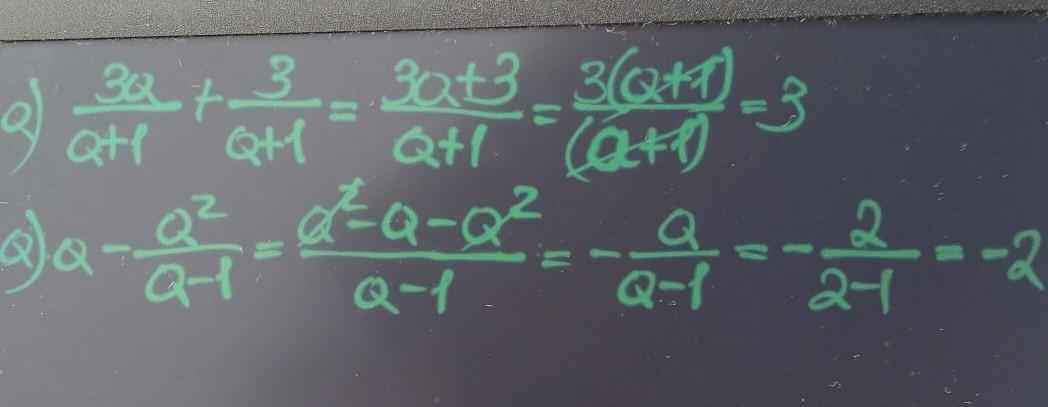 a) 3a/a+1 + 3/a+1 = 3a+3/a+1 = 3(a+1)/(a+1) = 3
a) a - a²/a-1 = a²-a-a²/a-1 = - a/a-1 = - 2/2-1 = -2